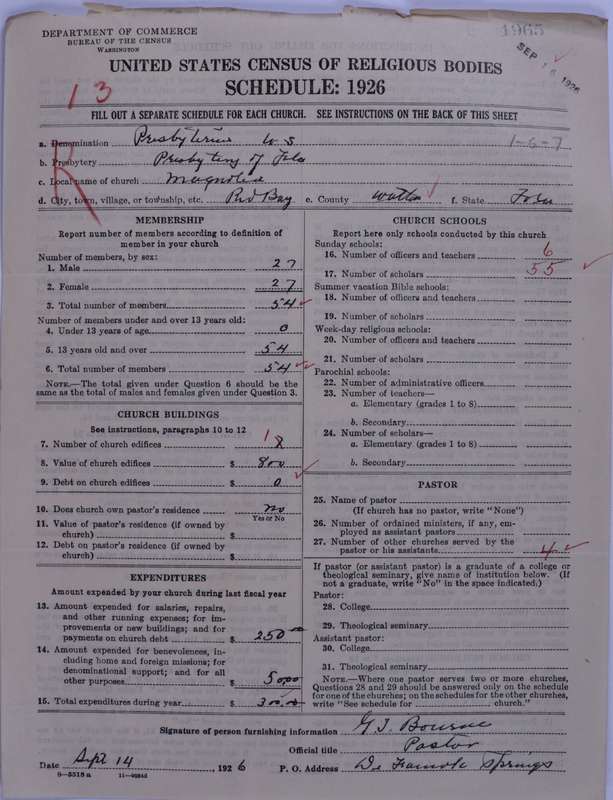 DEPARTMENT OF COMMERCE
BUREAU OF THE CENSUS
WASHINGTON
1965
SEP 16 1926
UNITED STATES CENSUS OF RELIGIOUS BODIES
SCHEDULE: 1926
13
FILL OUT A SEPARATE SCHEDULE FOR EACH CHURCH. SEE INSTRUCTIONS ON THE BACK OF THIS SHEET
a. Denomination Presbyterian U S 1-6-7
b. Presbytery Presbytery of Fla
c. Local name of church Magnolia
d. City, town, village, or township, etc. Red Bay e. County Walton f. State
MEMBERSHIP
Report number of members according to definition of
member in your church
Number of members, by sex:
1. Male 27
2. Female 27
3. Total number of members 54
Number of members under and over 13 years old:
4. Under 13 years of age 0
5. 13 years old and over 54
6. Total number of members 54
NOTE.—The total given under Question 6 should be the
same as the total of males and females given under Question 3.
CHURCH BUILDINGS
See instructions, paragraphs 10 to 12
7. Number of church edifices 1
8. Value of church edifices $ 800
9. Debt on church edifices $ 0
10. Does church own pastor's residence no
Yes or No
11. Value of pastor's residence (if owned by
church) $
12. Debt on pastor's residence (if owned by
church) $
EXPENDITURES
Amount expended by your church during last fiscal year
13. Amount expended for salaries, repairs,
and other running expenses; for im-
provements or new buildings; and for
payments on church debt $ 250 00
14. Amount expended for benevolences, in-
cluding home and foreign missions; for
denominational support; and for all
other purposes $ 50.00
15. Total expenditures during year $ 300.00
CHURCH SCHOOLS
Report here only schools conducted by this church
Sunday schools:
16. Number of officers and teachers 6
17. Number of scholars 55
Summer vacation Bible schools:
18. Number of officers and teachers
19. Number of scholars
Week-day religious schools:
20. Number of officers and teachers
21. Number of scholars
Parochial schools:
22. Number of administrative officers
23. Number of teachers—
a. Elementary (grades 1 to 8)
b. Secondary
24. Number of scholars—
a. Elementary (grades 1 to 8)
b. Secondary
PASTOR
25. Name of pastor
(If church has no pastor, write "None")
26. Number of ordained ministers, if any, em-
ployed as assistant pastors
27. Number of other churches served by the
pastor or his assistants 4
If pastor (or assistant pastor) is a graduate of a college or
theological seminary, give name of institution below. (If
not a graduate, write "No" in the space indicated.)
Pastor:
28. College
29. Theological seminary
Assistant pastor:
30. College
31. Theological seminary
NOTE.—Where one pastor serves two or more churches,
Questions 28 and 29 should be answered only on the schedule
for one of the churches; on the schedules for the other churches,
write "See schedule for church."
Signature of person furnishing information G. J. Bourne
Official title Pastor
Date Sept 14, 1926 P. O. Address De Funiak Springs
8-5518 a